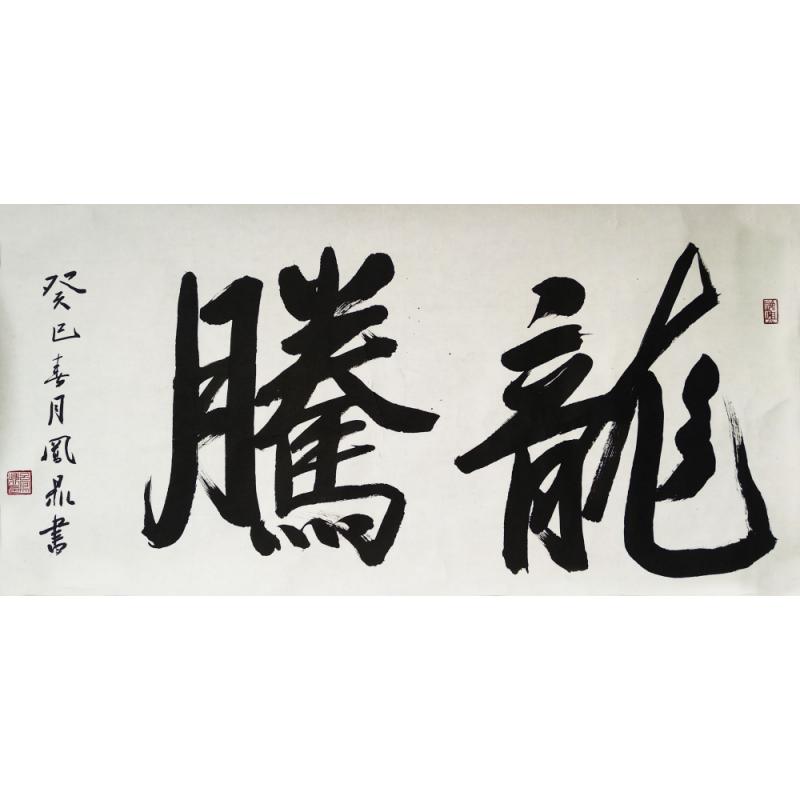 龍騰
癸巳春月鳳鼎書